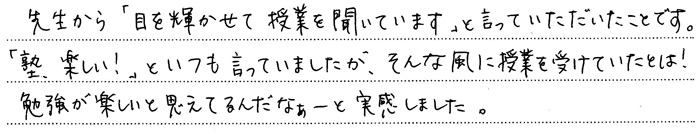 先生から「目を輝かせて授業を聞いています」と言っていただいたことです。
「塾、楽しい!」といつも言っていましたが、そんな風に授業を受けていたとは!
勉強が楽しいと思えてるんだなぁーと実感しました。